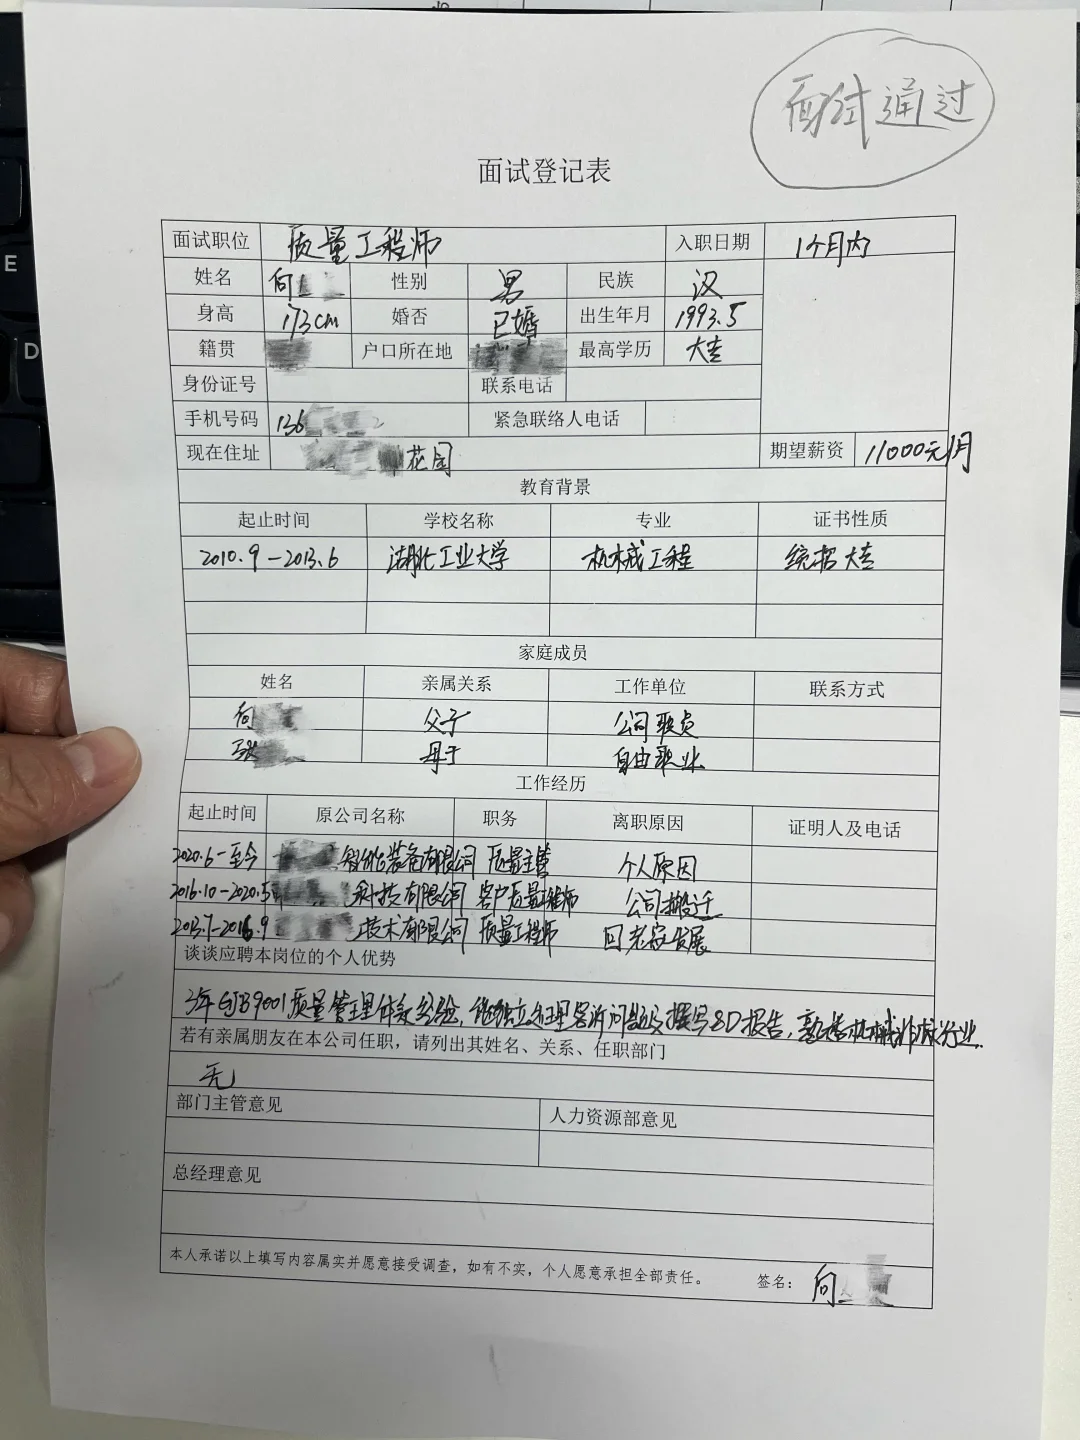 面试通过
面试登记表
面试职位 质量工程师 入职日期 1个月内
姓名 向 性别 男 民族 汉
身高 173cm 婚否 已婚 出生年月 1993.5
籍贯 户口所在地 最高学历 大专
身份证号 联系电话
手机号码 136 2 紧急联络人电话
现在住址 花园 期望薪资 11000元/月
教育背景
起止时间 学校名称 专业 证书性质
2010.9-2013.6 湖北工业大学 机械工程 统招大专
家庭成员
姓名 亲属关系 工作单位 联系方式
向 父子 公司职员
母子 自由职业
工作经历
起止时间 原公司名称 职务 离职原因 证明人及电话
2020.6-至今 智能装备有限公司 质量主管 个人原因
2016.10-2020.5 科技有限公司 客户质量工程师 公司搬迁
2013.7-2016.9 技术有限公司 质量工程师 回老家发展
谈谈应聘本岗位的个人优势
3年GJB9001质量管理体系经验,能独立处理客诉问题及撰写8D报告,熟悉机械行业.
若有亲属朋友在本公司任职，请列出其姓名、关系、任职部门
无
部门主管意见 人力资源部意见
总经理意见
本人承诺以上填写内容属实并愿意接受调查，如有不实，个人愿意承担全部责任。 签名： 向
E
D